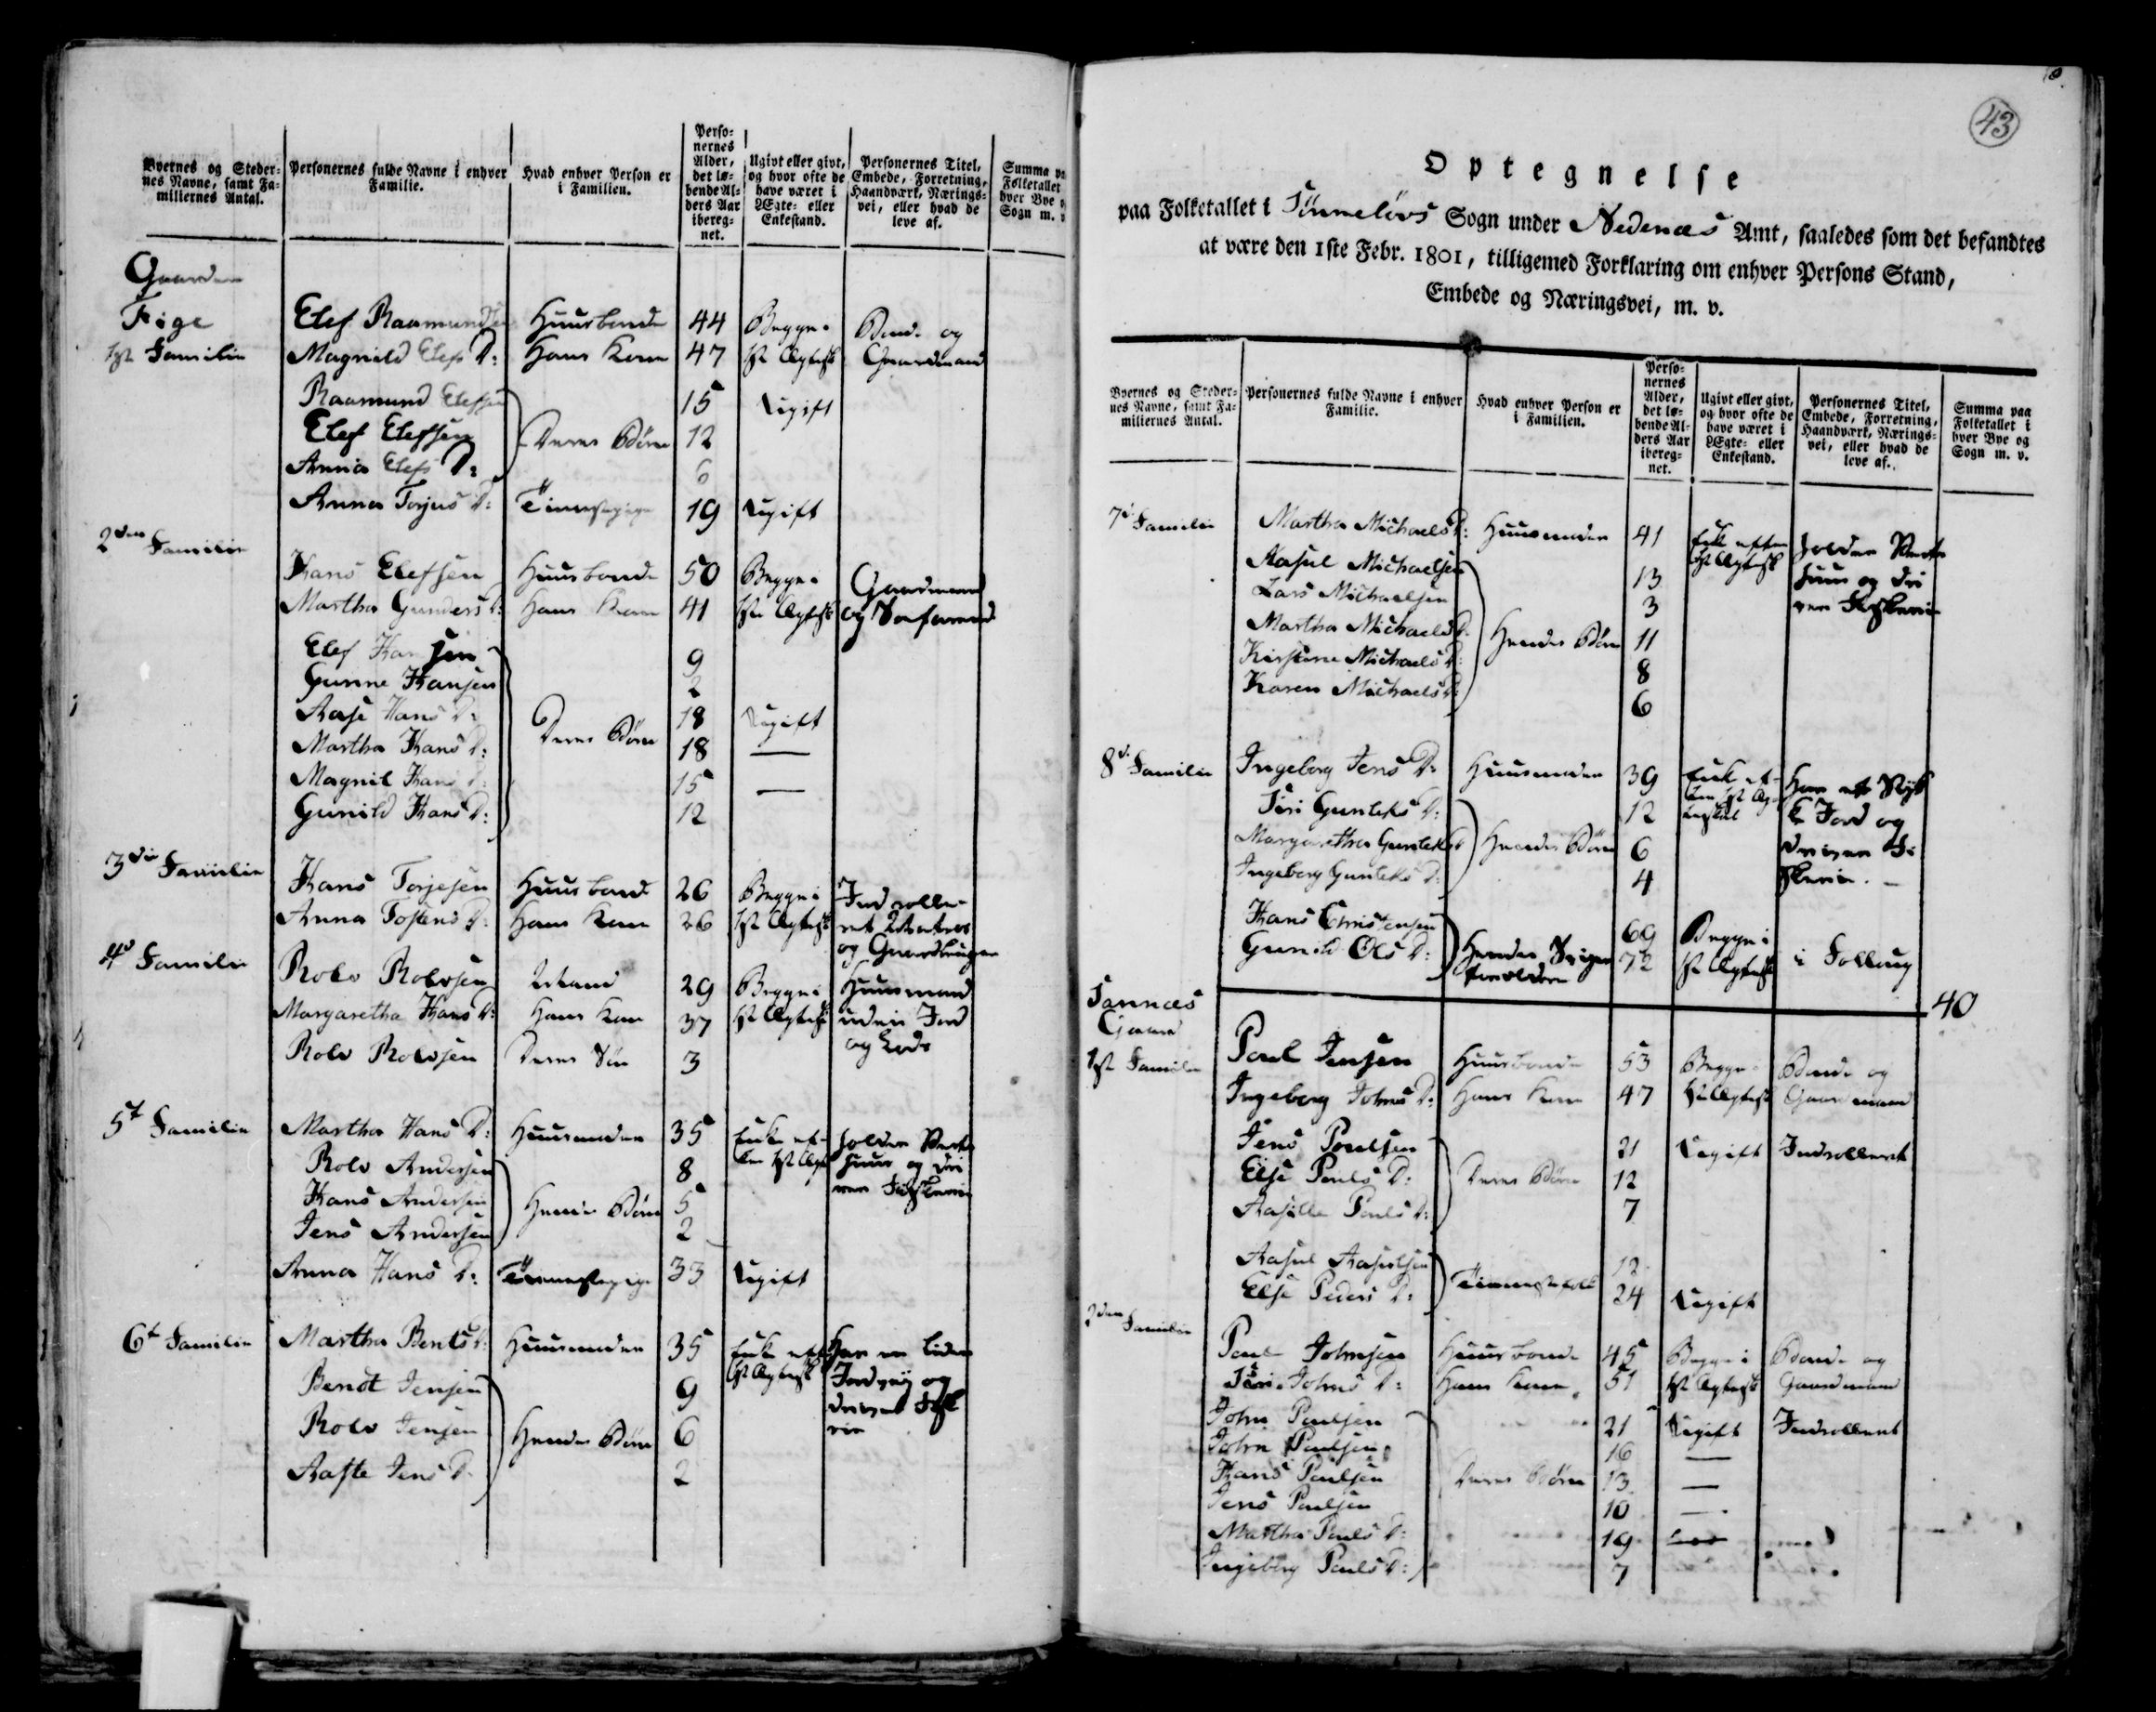 Byernes og Stedernes Navne, samt Familiernes Antal.
Personernes fulde Navne i enhver Familie.
Hvad enhver Person er i Familien.
Personernes Alder, det løbende Alders Aar iberegnet.
Ugivt eller givt, og hvor ofte de have været i Ægte- eller Enkestand.
Personernes Titel, Embede, Forretning, Haandværk, Næringsvei, eller hvad de leve af.
Gaarden
1ste Familie
Elef Raamundsen Huusbonde 44 Begge i Bonde og
Magnild Elefs D: Hans Kone 47 1ste Ægtesk Gaardmand
Raamund Elefsen 15 Ugift
Elef Elefsen Deres Børn 12
Anna Elefs D: 6
Anna Torjus D: Tienestepige 19 Ugift
2den Familie
Hans Elefsen Huusbonde 50 Begge i Gaardmand
Martha Gunders D: Hans Kone 41 1ste Ægtesk og Søefarend
Elef Hansen 9
Gunne Hansen 2
Aase Hans D: 18 Ugift
Martha Hans D: Deres Børn 18 —
Magnil Hans D: 15 —
Gunild Hans D: 12
3die Familie
Hans Torjesen Huusbonde 26 Begge i Indrolle-
Anna Tostens D: Hans Kone 26 1ste Ægtesk ret Matros
og Gaardbruger
4de Familie
Rolv Rolvsen Mand 29 Begge i Huusmand
Margaretha Hans D: Hans Kone 37 1ste Ægtesk uden Jord
Rolv Rolvsen Deres Søn 3 og Lods
5t Familie Martha Hans D: Huusmoder 35 Enke ef- holder Verts
Rolv Andersen 8 ter 1ste Ægt huus og dri
Hans Andersen Hendes Børn 5 ver Fiskerie
Jens Andersen 2
Anna Hans D: Tienestepige 33 Ugift
6t Familie Martha Bents D: Huusmoder 35 Enke eft Har en liden
Bendt Jensen 9 1ste Ægtesk Jordvei og
Rolv Jensen Hendes Børn 6 driver Fiske
rie
Aaste Jens D: 2
43
Optegnelse
paa Folketallet i Sogn under Nedenæs Amt, saaledes som det befandtes
at være den 1ste Febr. 1801, tilligemed Forklaring om enhver Persons Stand,
Embede og Næringsvei, m. v.
Byernes og Stedernes Navne, samt Familiernes Antal.
Personernes fulde Navne i enhver Familie.
Hvad enhver Person er i Familien.
Personernes Alder, det løbende Alders Aar iberegnet.
Ugivt eller givt, og hvor ofte de have været i Ægte- eller Enkestand.
Personernes Titel, Embede, Forretning, Haandværk, Næringsvei, eller hvad de leve af.
Summa paa Folketallet i hver Bye og Sogn m. v.
7de Familie Martha Michaels D: Huusmoder 41 Enke efter holder Verts
Aasul Michaelsen 13 1ste Ægtesk huus og dri
Lars Michaelsen 3 ver Fiskerie
Martha Michaels D: Hendes Børn 11
Kirstine Michaels D: 8
Karen Michaels D: 6
8de Familie Ingeborg Jens D: Huusmoder 39 Enke ef- Har et Styk
Siri Gunleks D: 12 ter 1ste Æg- k Jord og
Margaretha Gunleks D: Hendes Børn 6 teskab driver Fi
Ingeborg Gunleks D: 4 skerie. —
Hans Christensen 69 Begge i
Gunild Ols D: Hendes Sviger forældre 72 1ste Ægtesk
40
Gaard
1ste Familie Poul Jensen Huusbonde 53 Begge i Bonde og
Ingeborg Johns D: Hans Kone 47 1ste Ægtesk Gaardmand
Jens Poulsen 21 Ugift Indrolleret
Else Pouls D: Deres Børn 12
Aasille Pouls D: 7
Aasul Aasulsen 12
Else Peders D: Tienestefolk 24 Ugift
2den Familie
Poul Johnsen Huusbonde 45 Begge i Bonde og
Siri Johns D: Hans Kone 51 1ste Ægtesk Gaardmand
John Poulsen 21 Ugift Indrolleret
John Poulsen 16 —
Hans Poulsen Deres Børn 13 —
Jens Poulsen 10 —
Martha Pouls D: 19
Ingeborg Pouls D: 7